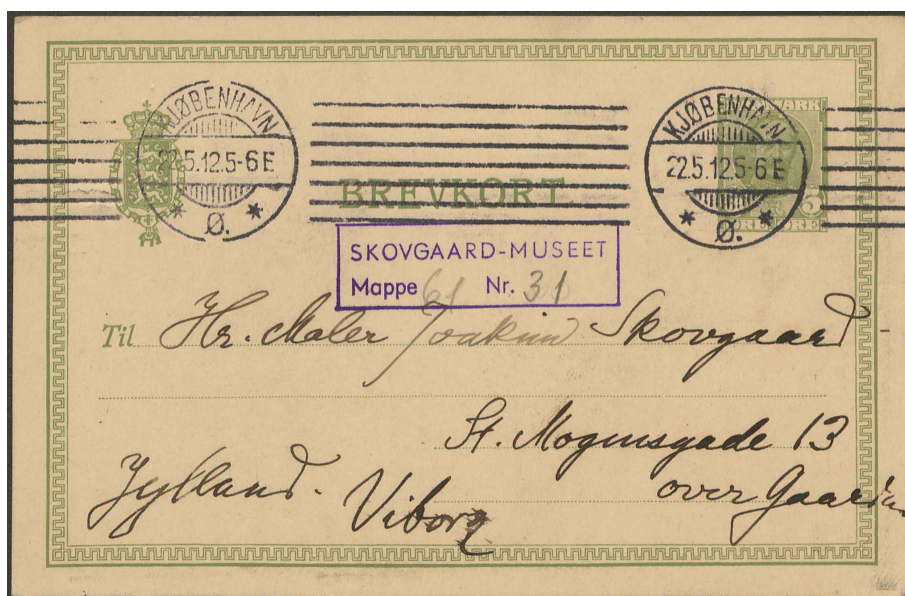 KJØBENHAVN
22.5.12.5-6 E
* Ø. *
KJØBENHAVN
22.5.12.5-6 E
* Ø. *
DANMARK
5
BREVKORT
SKOVGAARD-MUSEET
Mappe 61 Nr. 31
Til Hr. Maler Joakim Skovgaard -
St. Mogensgade 13
over Gaarden
Jylland. Viborg